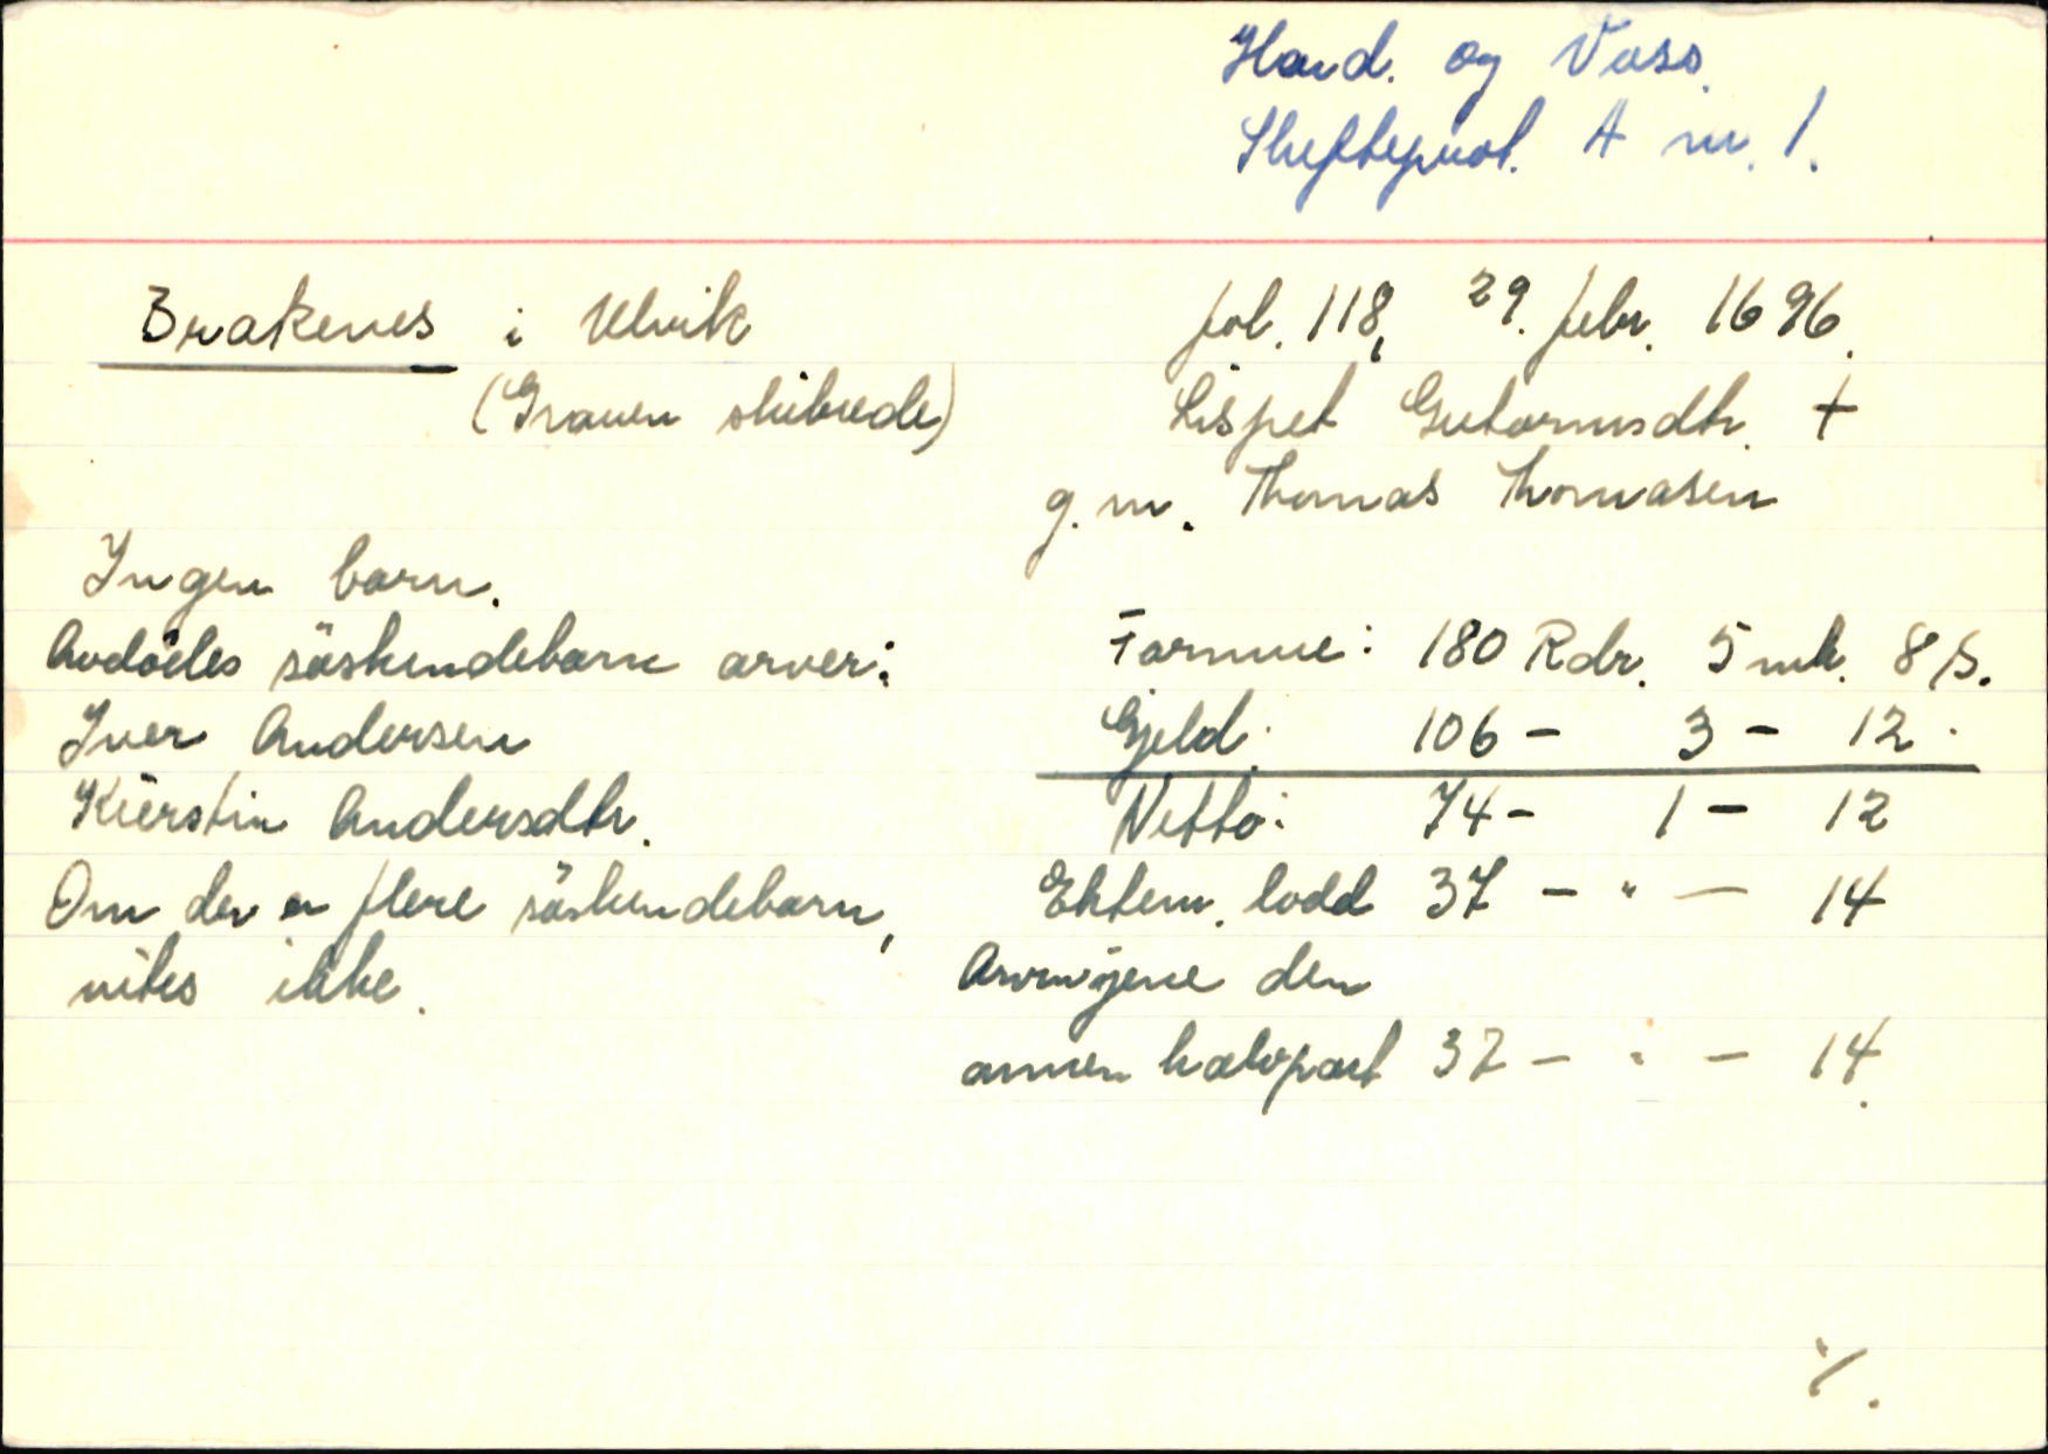 Hard. og Voss.
Skifteprot. A nr. 1.
Brakenes i Ulvik
(Graven skibrede)
fol. 118, 29. febr. 1696.
Lispet Gutormsdtr. +
g. m. Thomas Thomasen
Ingen barn.
Avdödes söskendebarn arver:
Iver Andersen
Kierstin Andersdtr.
Om der er flere söskendebarn,
vites ikke.
Formue: 180 Rdr. 5 mk. 8 s.
Gjeld: 106 - 3 - 12.
Netto: 74 - 1 - 12
Ektem. lodd 37 - " - 14
Arvingene den
annen halvpart 37 - " - 14.
./.